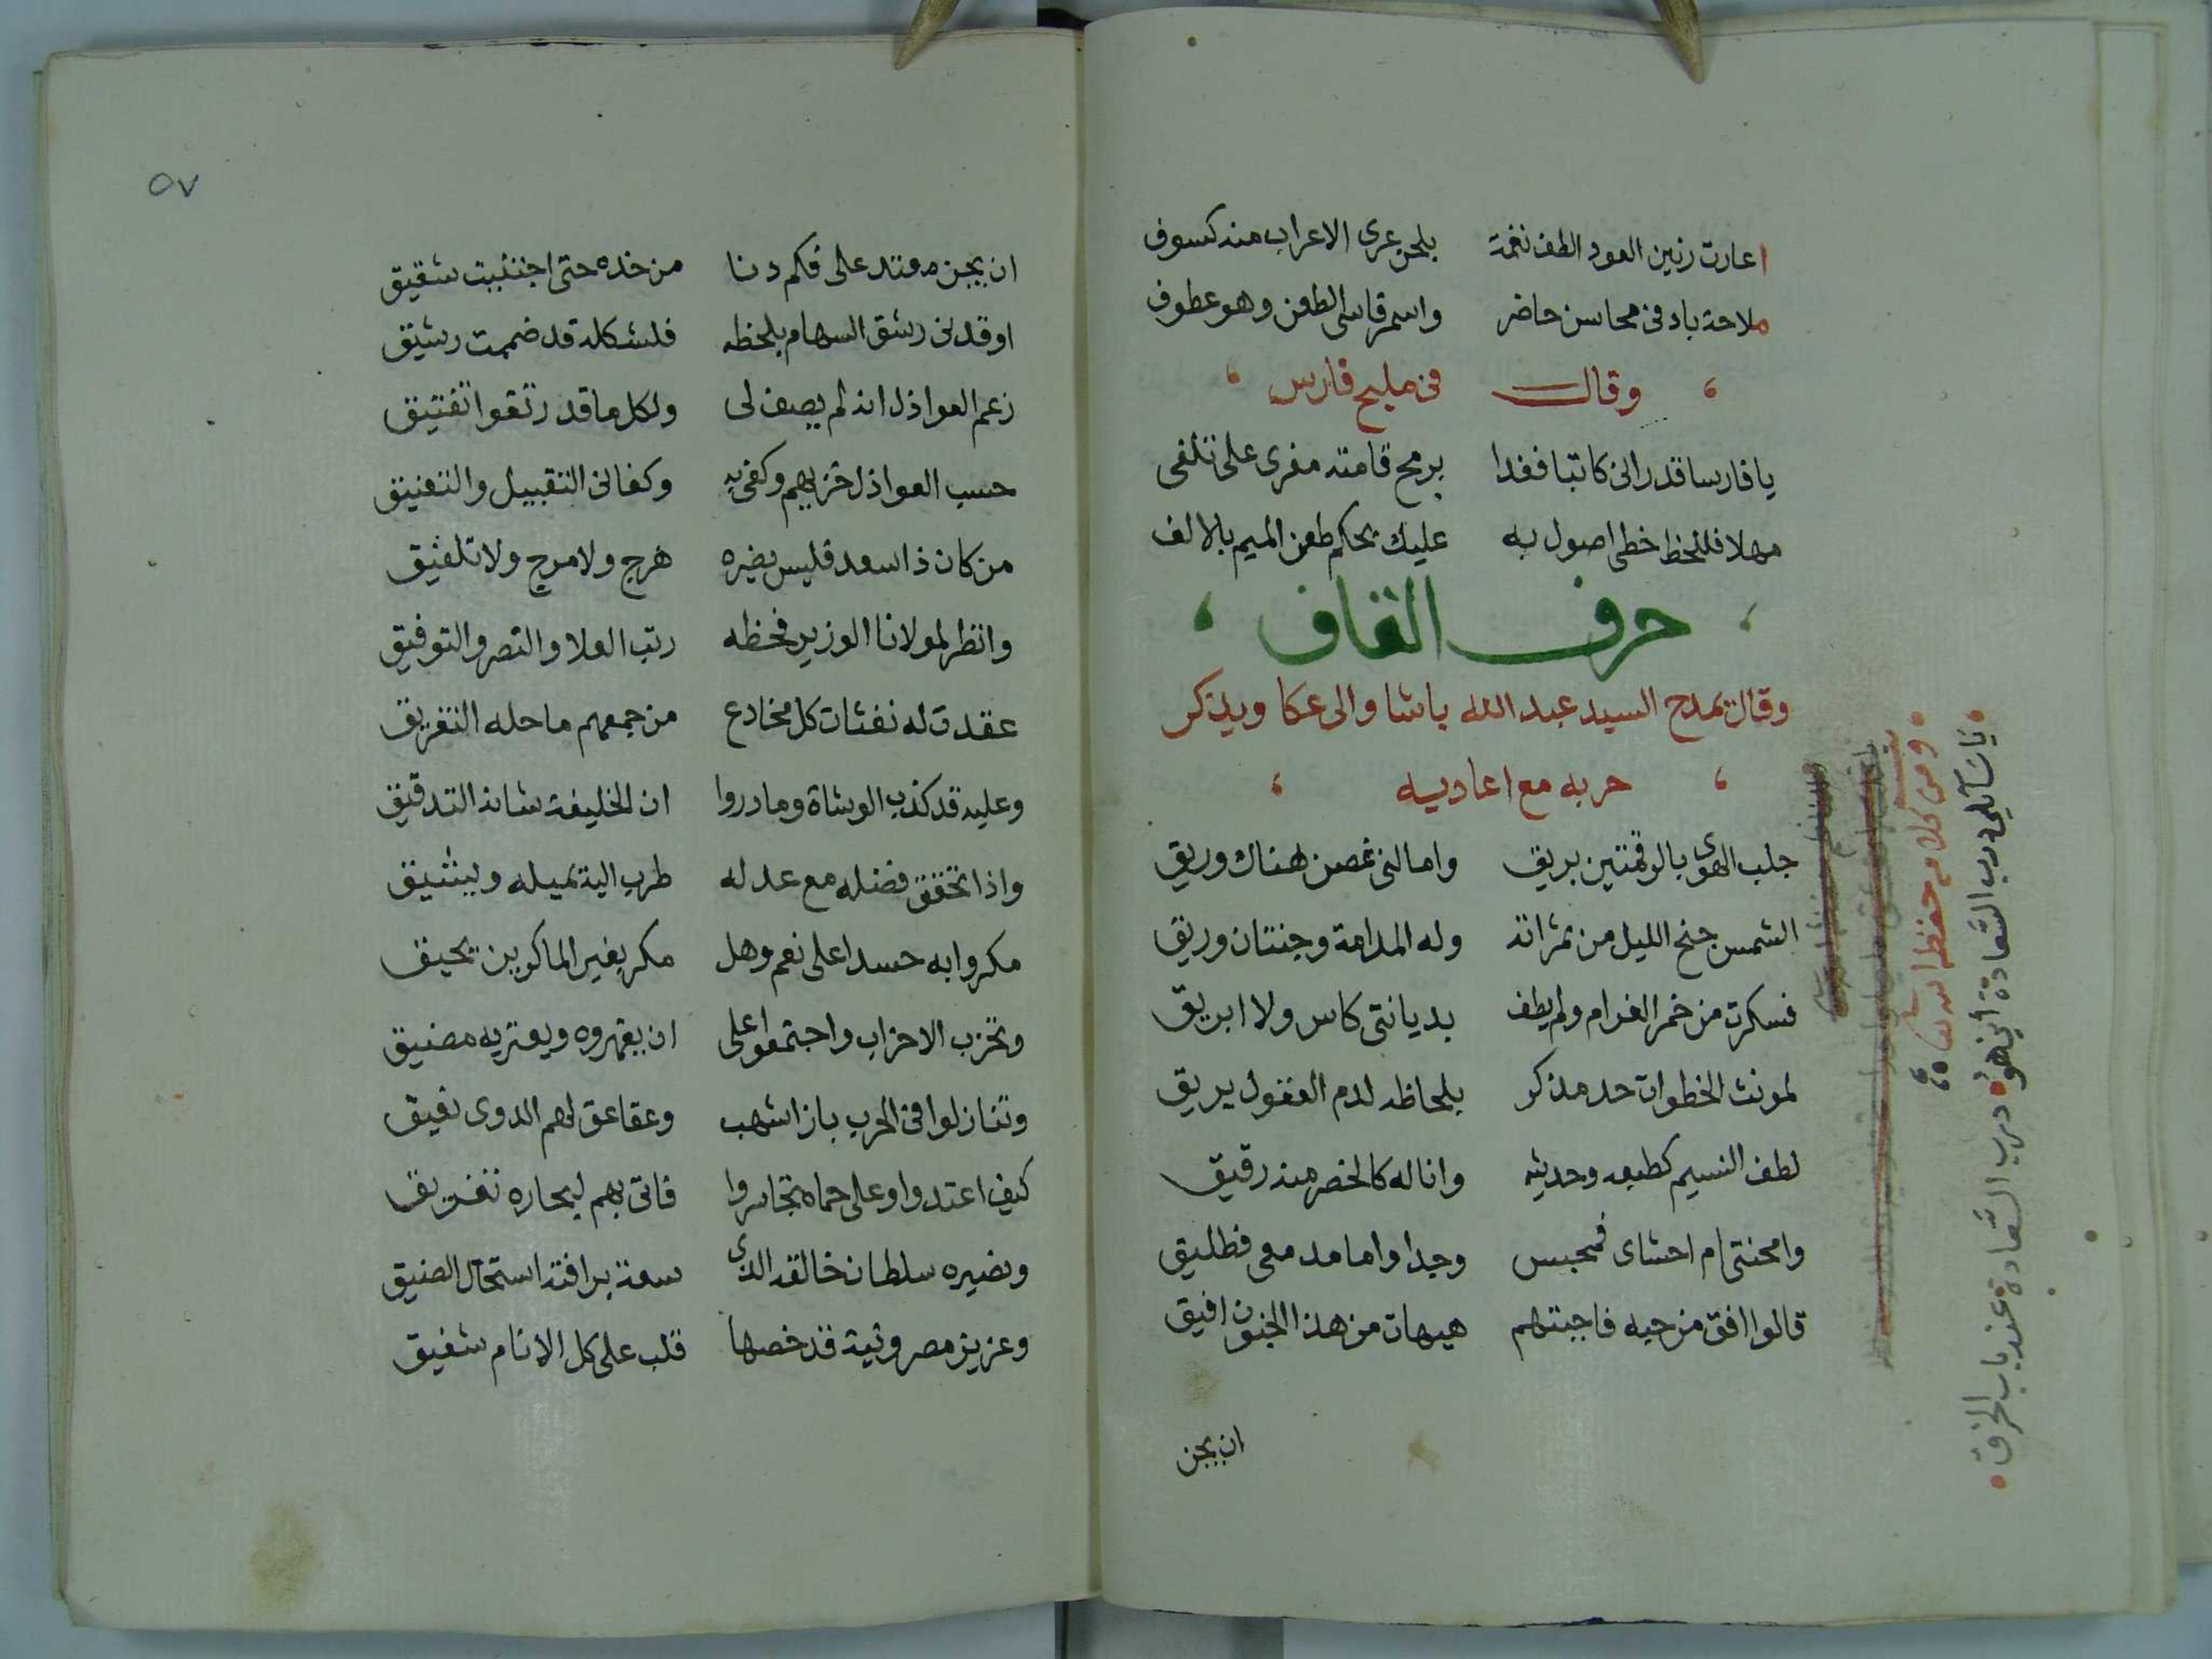 اعارت رنين العود الطف نغمة بلحن عرى الاعراب منه كسوف
ملاحة باد فى محاسن حاضر واسمر قاسى الطعن وهو عطوف
وقال فى مليح فارس
يا فارسا قد رانى كاتبا فغدا برمح قامته مغرى على تلفى
مهلا فللخط خطى اصول به عليك يحكم طعن الميم بالالف
حرف القاف
وقال يمدح السيد عبد الله باشا والى عكا ويذكر
حربه مع اعاديه
جلب الهوى بالرقمتين بريق وامالنى غصن هناك وريق
الشمس جنح الليل من ثمراته وله المدامة وجنتان وريق
فسكرت من خمر الغرام ولم يطف بديانتى كاس ولا ابريق
لمونث الخطوات حد مذكر بلحاظه لدم العقول يريق
لطف النسيم كطبعه وحديثه وانا له كالخصر منه رقيق
وامحنتى ام احشاى فمحبس وجدا واما مدمعى فطليق
قالوا افق من حبه فاجبتهم هيهات من هذا الجنون افيق
ان يجن
ومن كلامه حفظه الله
يا سائلى درب السعادة اين هو درب السعادة عند باب الخرق
٥٧
ان يجن مقتدر على فكم دنا من خده حتى اجتنيت شقيق
او قدنى رشق السهام بلحظه فلشكله قد ضممت رشيق
زعم العواذل انه لم يصف لى ولكل ما قد رتقوا تفتيق
حسب العواذل خزيهم وكفى به وكفانى التقبيل والتعنيق
من كان ذا سعد فليس يضيره هرج ولا مرج ولا تلفيق
وانظر لمولانا الوزير فحظه رتب العلا والنصر والتوفيق
عقدت له نفثات كل مخادع من جمعهم ما حله التفريق
وعليه قد كذب الوشاة وما دروا ان الخليفة شانه التدقيق
واذا تحقق فضله مع عدله طرب اليه تميله ويثنيق
مكروا به حسدا على نعم وهل مكر بغير الماكرين يحيق
وتحزب الاحزاب واجتمعوا على ان يقهروه ويعتريه مضيق
وتنازلوا فى الحرب باز اشهب وعقاعق لهم الدوى نعيق
كيف اعتدوا وعلى حماه تجاسروا فاتى بهم لبحاره تغريق
ونصيره سلطان خالقه الذى سعة برافته استحال الضيق
وعزيز مصر وثيقة قد خصها قلب على كل الانام شفيق